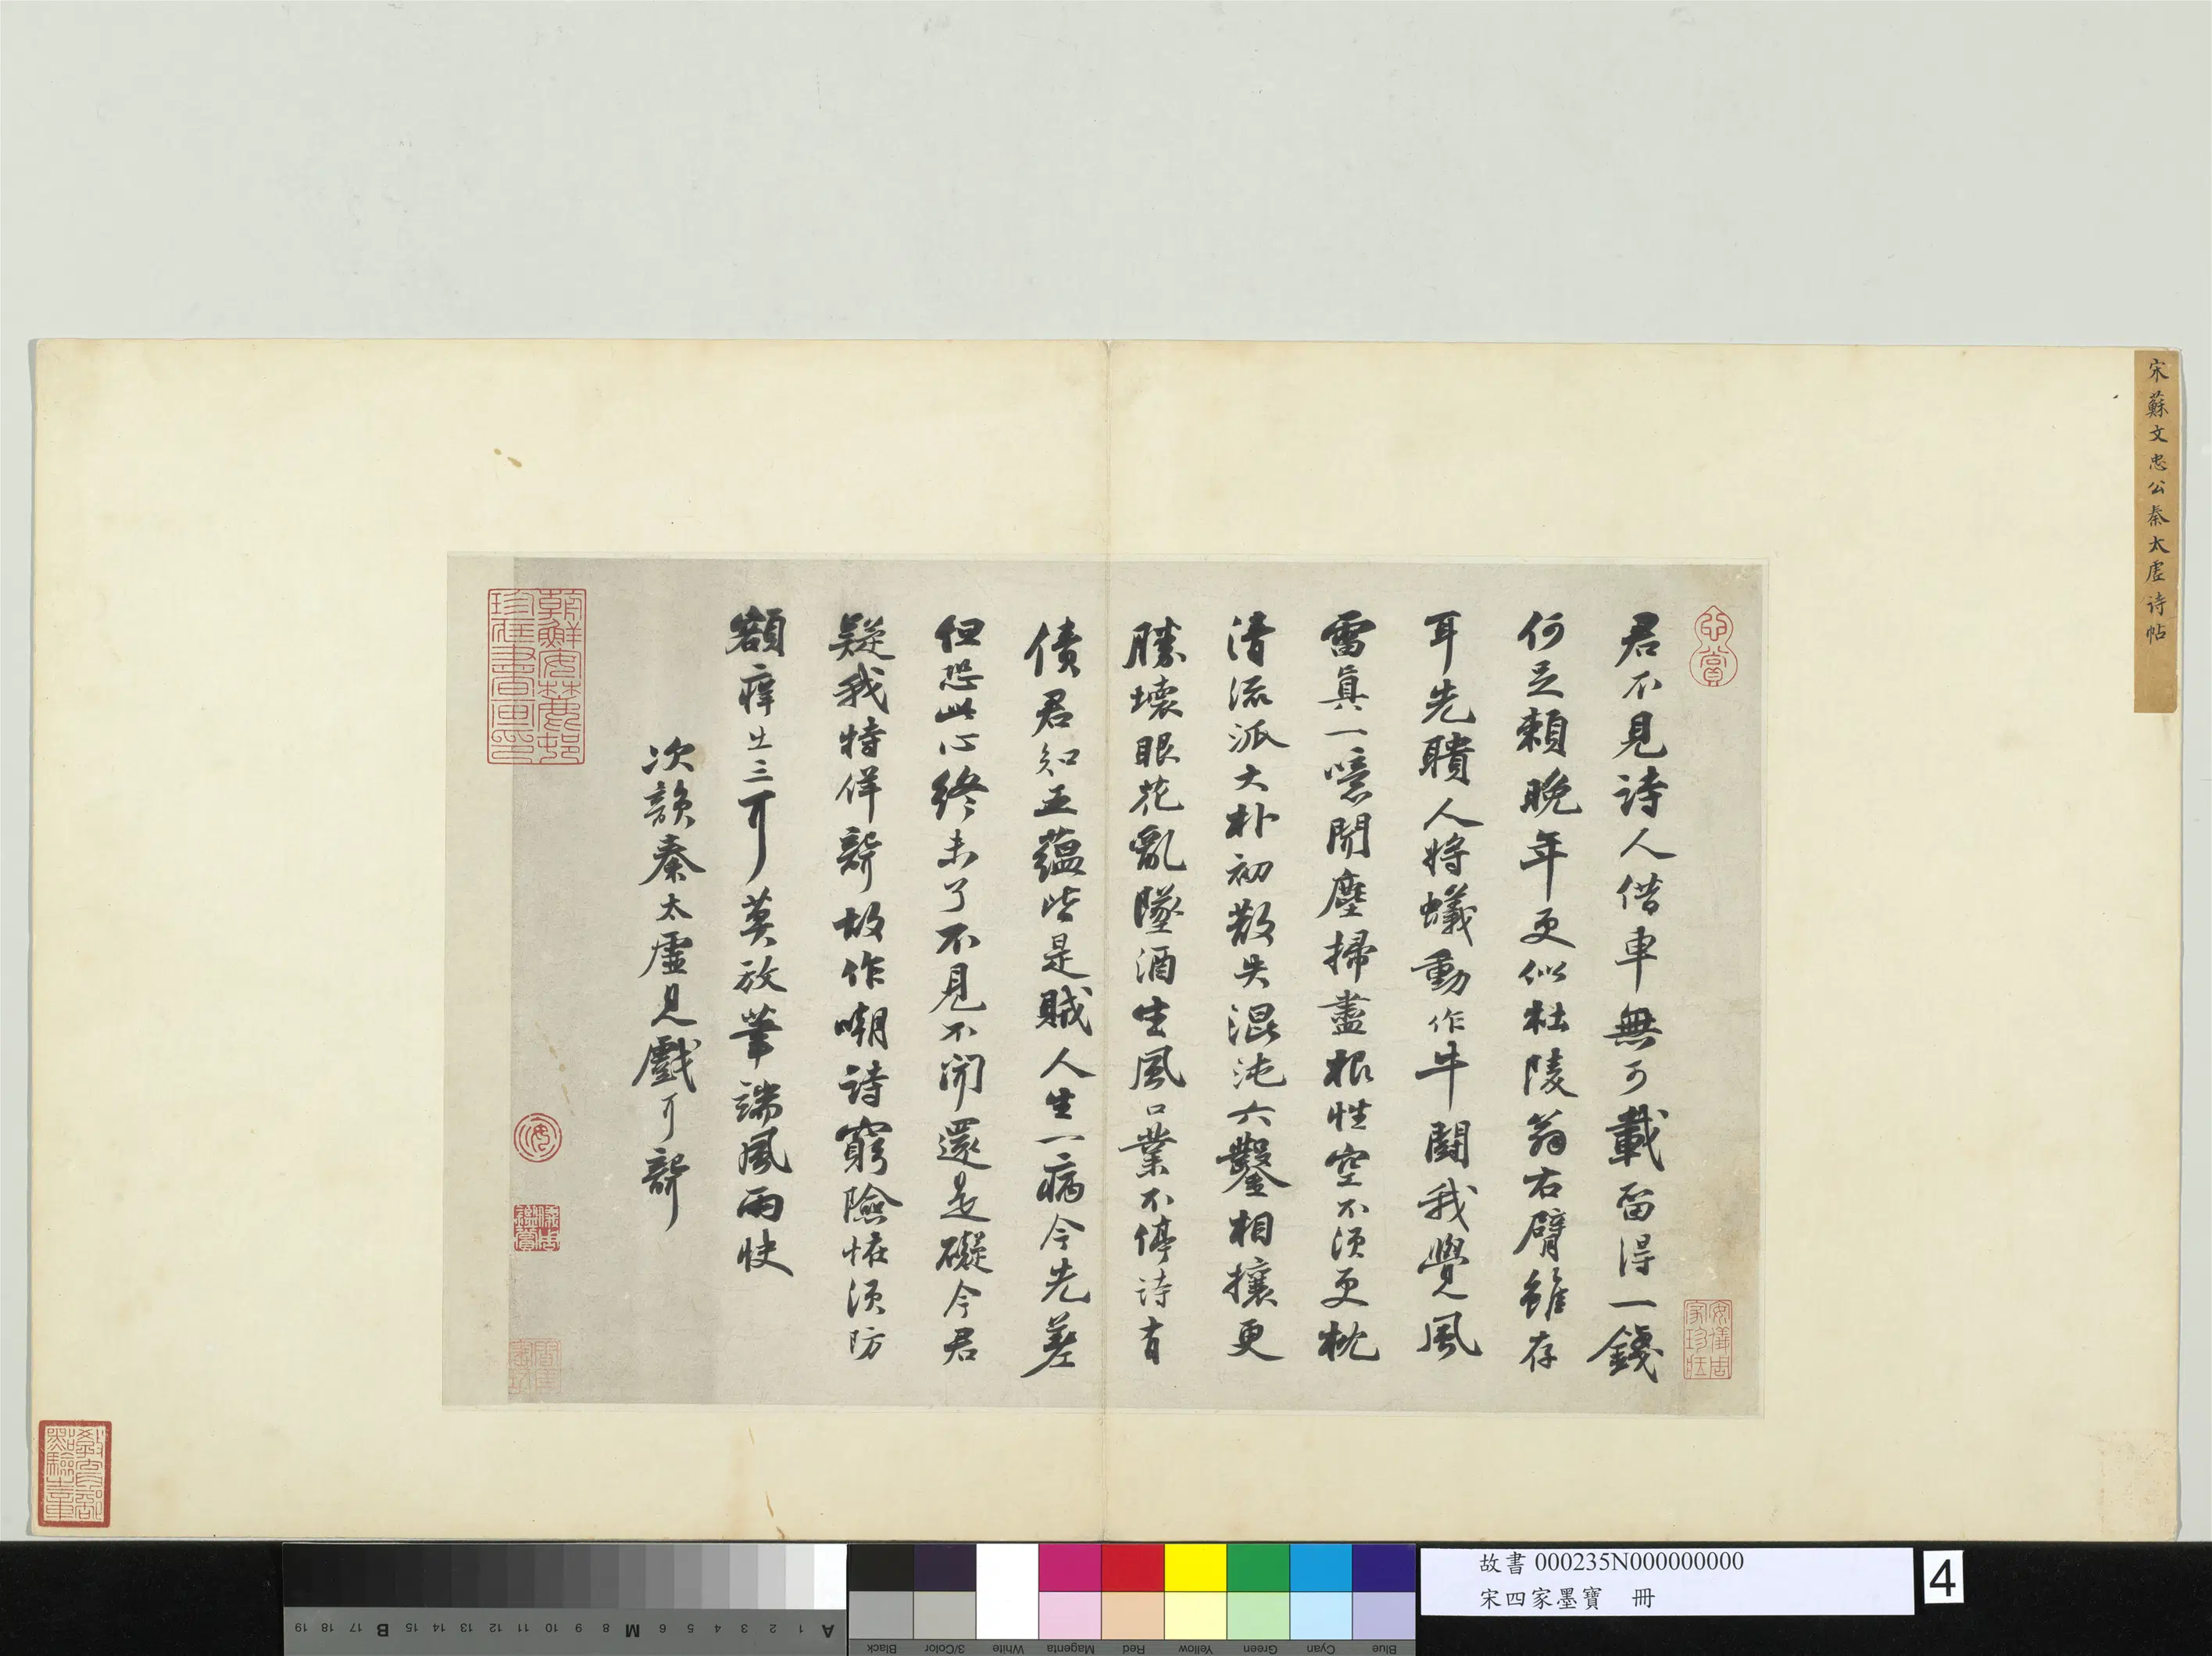 宋蘇文忠公秦太虛詩帖
君不見詩人借車無可載留得一錢
何足賴晚年更似杜陵翁右臂雖存
耳先聵人將蟻動作牛鬭我覺風
雷真一噫聞塵掃盡根性空不須更枕
清流派大朴初散失混沌六鑿相攘更
勝壞眼花亂墜酒生風口業不停詩有
債君知五蘊皆是賊人生一病今先差
但恐此心終未了不見不聞還是礙今君
疑我特佯聾故作嘲詩窮險怪須防
額痒出三耳莫放筆端風雨快
次韻秦太虛見戲耳聾
朝鮮安
珍藏書畫印
安儀周
家珍藏
教育部
點驗之章
故書 000235N000000000
宋四家墨寶 冊
4
A 1 2 3 4 5 6 M 8 9 10 11 12 13 14 15 B 17 18 19
Black 3/Color White Magenta Red Yellow Green Cyan Blue